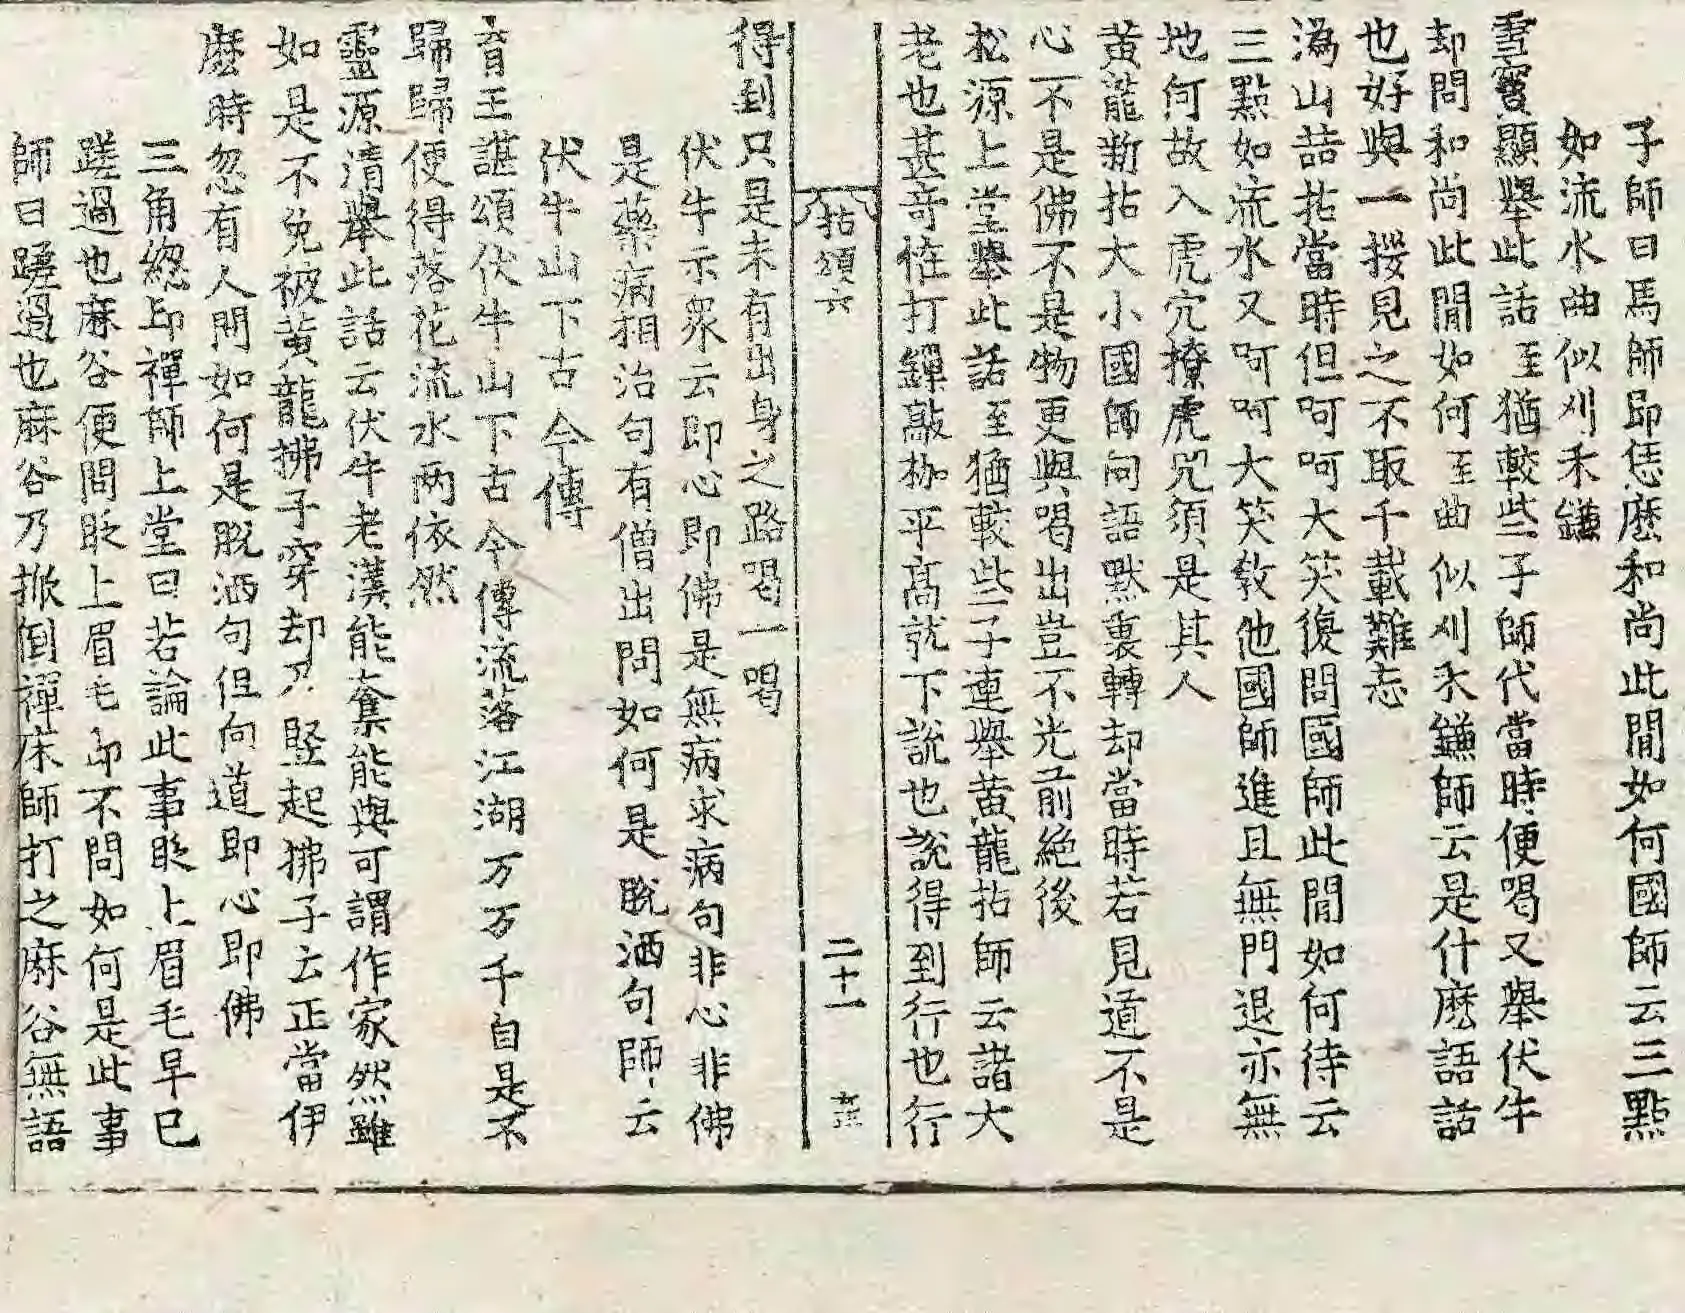 子師曰馬師即恁麽和尚此間如何國師云三點
如流水曲似刈禾鎌
雪竇顯舉此話至猶較些子師代當時便喝又舉伏牛
却問和尚此間如何至曲似刈禾鎌師云是什麽語話
也好與一拶見之不取千載難忘
潙山喆拈當時但呵呵大笑復問國師此間如何待云
三點如流水又呵呵大笑教他國師進且無門退亦無
地何故入虎穴撩虎兕須是其人
黃龍新拈大小國師向語默裏轉却當時若見道不是
心不是佛不是物更與喝出豈不光前絶後
松源上堂舉此話至猶較些子連舉黃龍拈師云諸大
老也甚竒恠打鑼敲枷平高就下說也說得到行也行
拈頌六
二十一
得到只是未有出身之路喝一喝
伏牛示衆云即心即佛是無病求病句非心非佛
是藥病相治句有僧出問如何是脫洒句師云
伏牛山下古今傳
育王諶頌伏牛山下古今傳流落江湖万万千自是不
歸歸便得落花流水两依然
靈源清舉此話云伏牛老漢能奪能與可謂作家然雖
如是不免被黃龍拂子穿却乃竪起拂子云正當伊
麽時忽有人問如何是脫洒句但向道即心即佛
三角緫印禪師上堂曰若論此事眨上眉毛早已
蹉過也麻谷便問眨上眉毛即不問如何是此事
師曰蹉過也麻谷乃掀倒禪床師打之麻谷無語